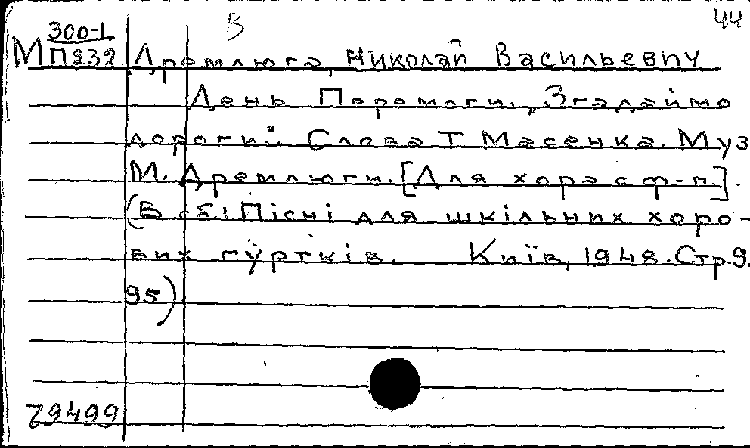 300-1 В 44
М П232 Дремлюга, Николай Васильевич
День Перемоги. Згадаймо
дорогий. Слова Т. Масенка. Муз.
М. Дремлюги. [Для хора с ф-п].
(В сб: Пісні для шкільних хоро-
вих гуртків. Київ, 1948. Стр. 9.
95)
79499